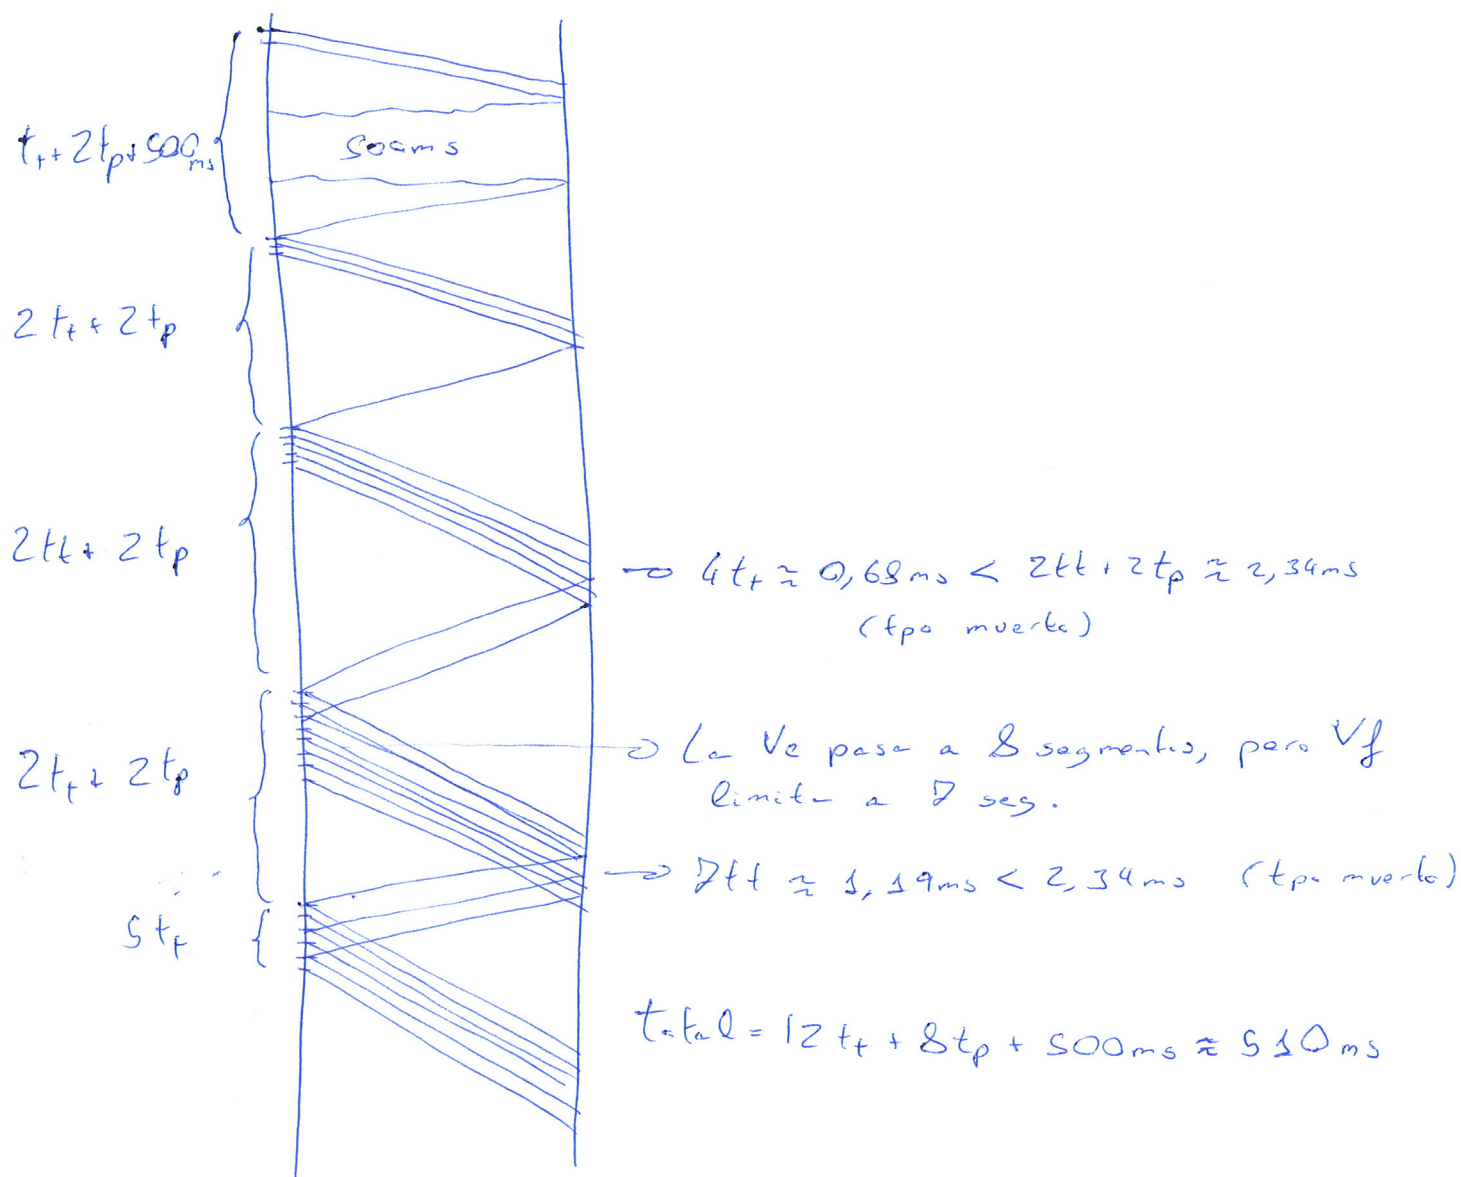 t_t + 2t_p + 500ms
500ms
2t_t + 2t_p
2tt + 2t_p
→ 4t_t ≈ 0,68ms < 2tt + 2t_p ≈ 2,34ms
(tpo muerto)
2t_t + 2t_p
→ La Vc pasa a 8 segmentos, pero Vf
limita a 7 seg.
→ 7tt ≈ 1,19ms < 2,34ms (tpo muerto)
5t_t
total = 12t_t + 8t_p + 500ms ≈ 510ms